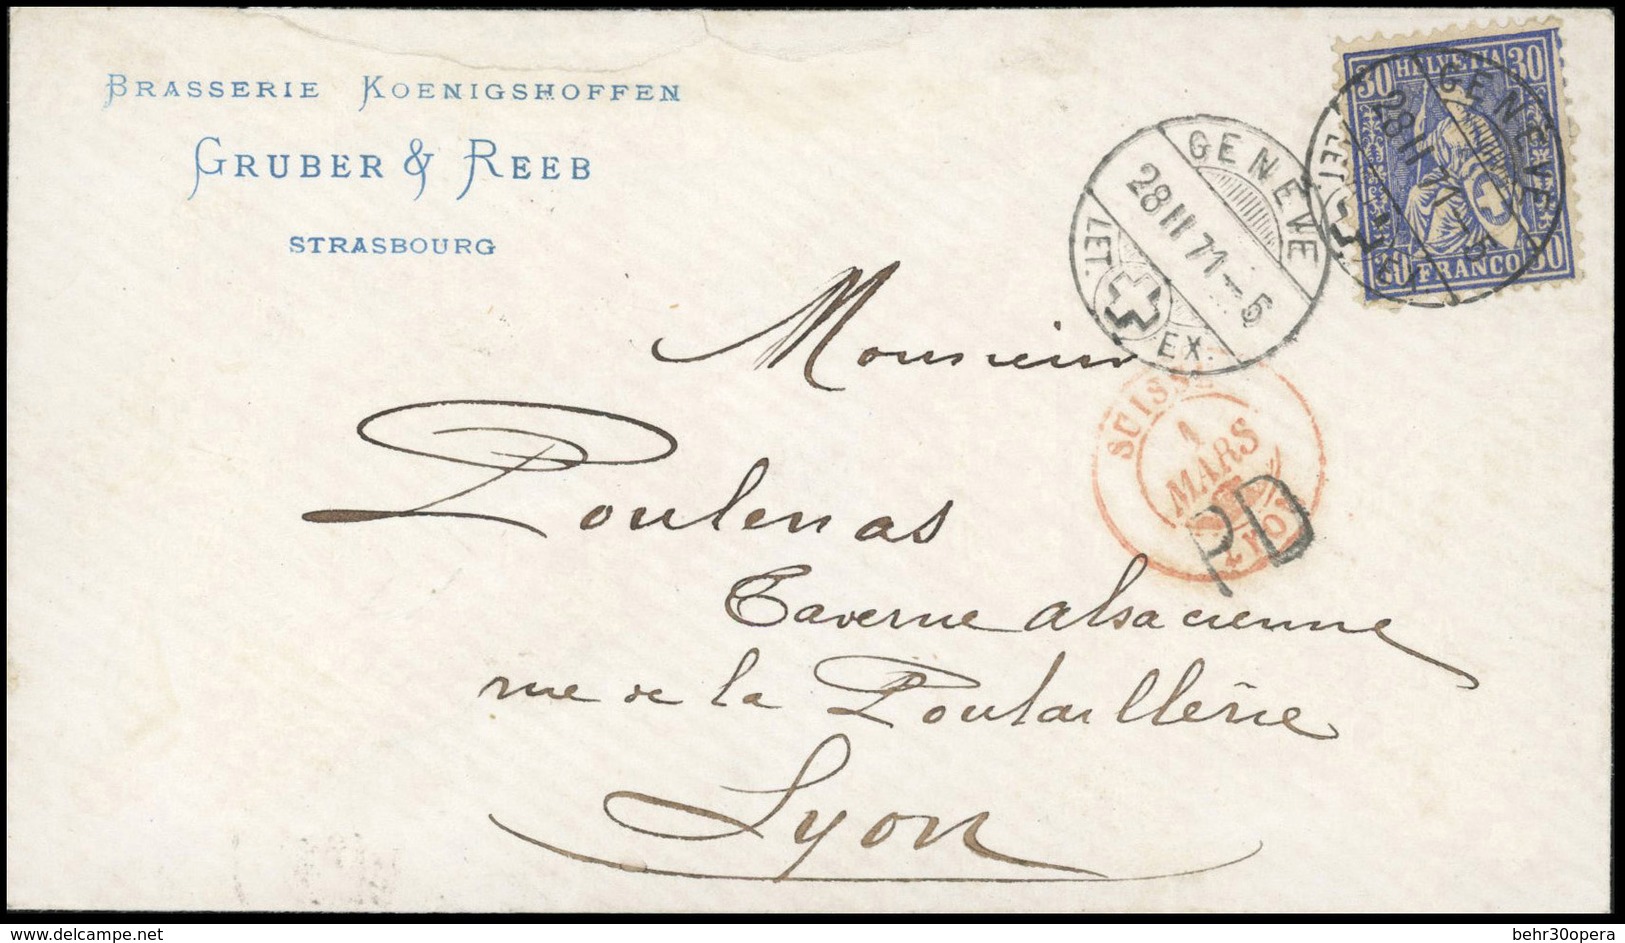 BRASSERIE KOENIGSHOFFEN
GRUBER & REEB
STRASBOURG
30 HELVETIA 30
30 FRANCO 30
GENÈVE
28 II 71 - 5
LET. EX.
GENÈVE
28 II 71 - 5
LET. EX.
SUISSE
1
MARS
LYON
PD
Monsieur
Poulenas
Taverne alsacienne
rue de la Poulaillerie
Lyon
www.delcampe.net
behr30opera